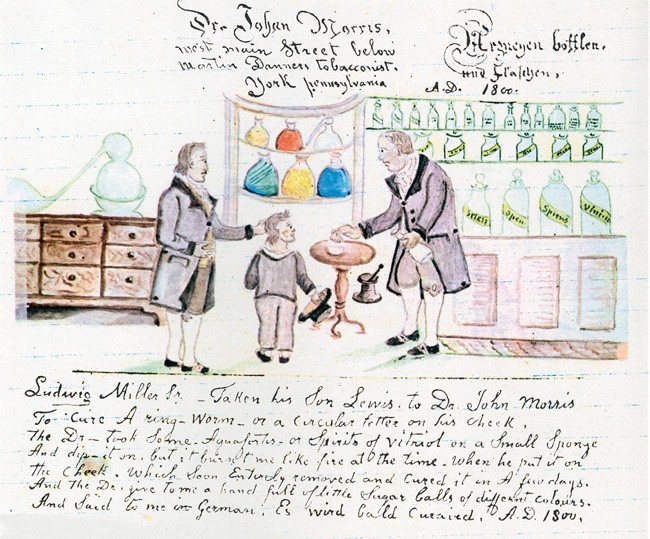 Dr. Johan Morris,
west main Street below
Martin Danners tobacconist.
York pennsylvania
Armeyen bottlen.
und Flaschen,
A.D. 1800.
Spirits
Vitriol
Ludwig Miller Sr. – Taken his Son Lewis. to Dr. John Morris
To Cure A ring-Worm – or a Circular tetter on his cheek.
The Dr – took Some Aquafortis – or Spirits of vitriol on a Small Sponge
And dip-it on. but it burnt me like fire at the time – When he put it on
the Cheek. Which Soon Entirely removed and Cured it in A few days.
And the Dr. give to me a hand full of little Sugar balls of differnt colours.
And Said to me in German. Es wird bald Curaired. A.D. 1800.